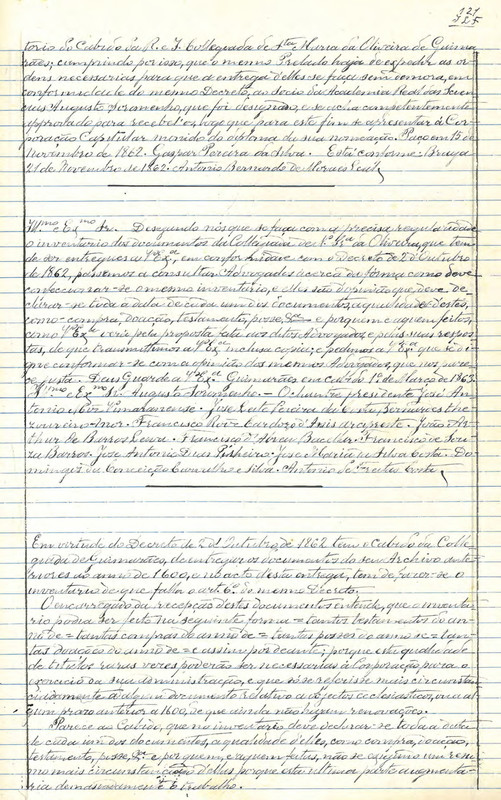 121
torio do Cabido da R. e I. Collegiada de Sta Maria da Oliveira de Guima
rães; cumprindo por isso, que o mesmo Prelado haja de expedir as or
dens necessarias para que a entrega d'elles se faça sem demora, em
conformidade do mesmo Decreto, ao Socio da Academia Real das Scien
cias Augusto Soromenho, que foi designado, e se acha competentemente
approvado para recebel-os, logo que para este fim se apresentar á Cor
poração Capitular munido do diploma de sua nomeação. Paço em 15 de
Novembro de 1862. Gaspar Pereira da Silva. Está conforme. Braga
21 de Novembro de 1862. Antonio Bernardo de Moraes Leal
Illmo e Exmo Sr. Desejando nós que se faça com a precisa regularidade
o inventario dos documentos da Collegiada de N. Sra da Oliveira, que tem
de ser entregues a V. Exa, em conformidade com o Decreto de 2 d'Outubro
de 1862, passamos a consultar Advogados ácerca da forma como deve
confeccionar-se o mesmo inventario, e elles são d'opinião que deve de
clarar-se toda a data de cada um dos Documentos, a qualidade d'estes,
como = compra, doação, testamento, posse, &a = e por quem e a quem feitos,
como V. Exa verá pela proposta feita aos ditos Advogados, e pelas suas respos
tas, de que transmittimos a V. Exa inclusa copia; e pedimos a V. Exa que se di
gne conformar-se com a opinião dos mesmos Advogados, que nos pare
ce justa. Deus Guarde a V. Exa. Guimarães em Cabido 12 de Março de 1863.
Illmo Exmo Sr. Augusto Soromenho. = O Chantre presidente José An
tonio
José Leite Pereira da Costa Bernardes
Francisco
João Ar
thur de Barros Lima. Francisco d'Abreu Bacellar. Francisco de Sou
za Barros. José Antonio Dias Pinheiro. José Maria da Silva Costa. Do
mingos da Conceição Carvalho e Silva. Antonio de Freitas Costa
Em virtude do Decreto de 2 d'Outubro de 1862 tem o Cabido da Colle
giada de Guimarães, de entregar os documentos do seu Archivo ante
riores ao anno de 1600, e no acto d'esta entrega, tem de fazer-se o
inventario de que falla o artº 6º do mesmo Decreto.
O encarregado da recepção d'estes documentos entende, que o inventa
rio podia ser feito na seguinte forma = tantos testamentos do an
no de = tantas compras do anno de = tantas posses do anno de = tan
tas doações do anno de = e assim por deante; porque esta qualidade
de titulos raras vezes poderão ser necessarios á Corporação para o
exercicio da sua administração, e que só se referisse mais circumstan
ciadamente a algum documento relativo a objectos ecclesiasticos, ou a al
gum prazo anterior a 1600, de que ainda não hajam renovações.
Parece ao Cabido, que no inventario deve declarar-se toda a data
de cada um dos documentos, a qualidade d'elles, como compra, doação,
testamento, posse, &a e por quem, e a quem feitos, não se exigindo um resu
mo mais circumstanciado d'elles, porque esta ultima parte augmenta
ria demasiadamente o trabalho.